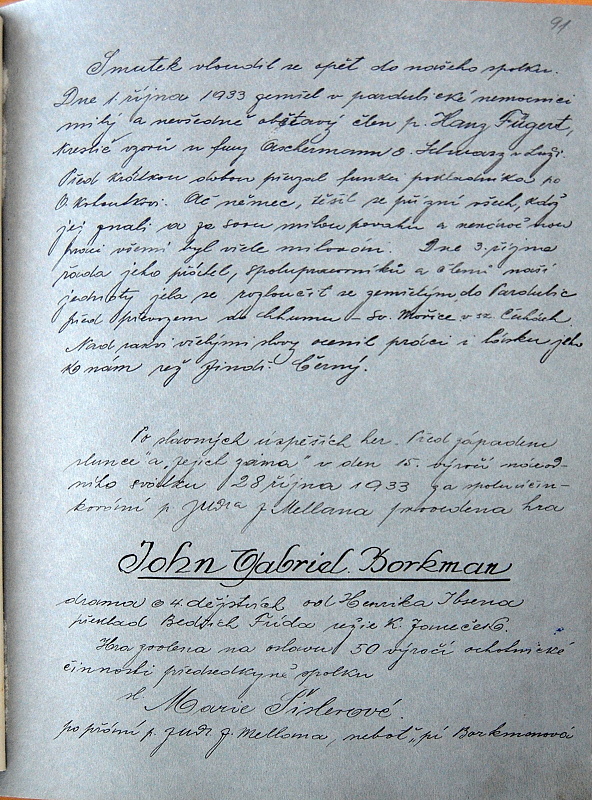 91
Smutek vloudil se opět do našeho spolku.
Dne 1. října 1933 zemřel v pardubické nemocnici
milý a nevšedně obětavý člen p. Hanz Fügert,
kreslič vzorů u firmy Aschermann & Schwarz v Luži.
Před krátkou dobou převzal funkci pokladníka po
O. Kolouškovi. Ač němec, těšil se přízni všech, kdož
jej znali a za svou milou povahu a nenáročnou
práci všemi byl vřele milován. Dne 3. října
řada jeho přátel, spolupracovníků a členů naší
jednoty jela se rozloučit se zemřelým do Pardubic
před převozem do Chlumu – Sv. Mořice v sz. Čechách.
Nad rakví vřelými slovy ocenil práci i lásku jeho
k nám rež. Jindř. Černý.
Po slavných úspěších her „Před západem
slunce" a „Jejich záma" v den 15. výročí národ-
ního svátku 28 října 1933 za spoluúčin-
kování p. JUDra J. Mellana provedena hra
John Gabriel Borkman
drama o 4. dějstvích od Henrika Ibsena
překlad Bedřich Frída režie K. Janeček
Hra zvolena na oslavu 50 výročí ochotnické
činnosti předsedkyně spolku
sl. Marie Šislerové.
po přání p. JUDr J. Mellana, neboť „pí Borkmanová